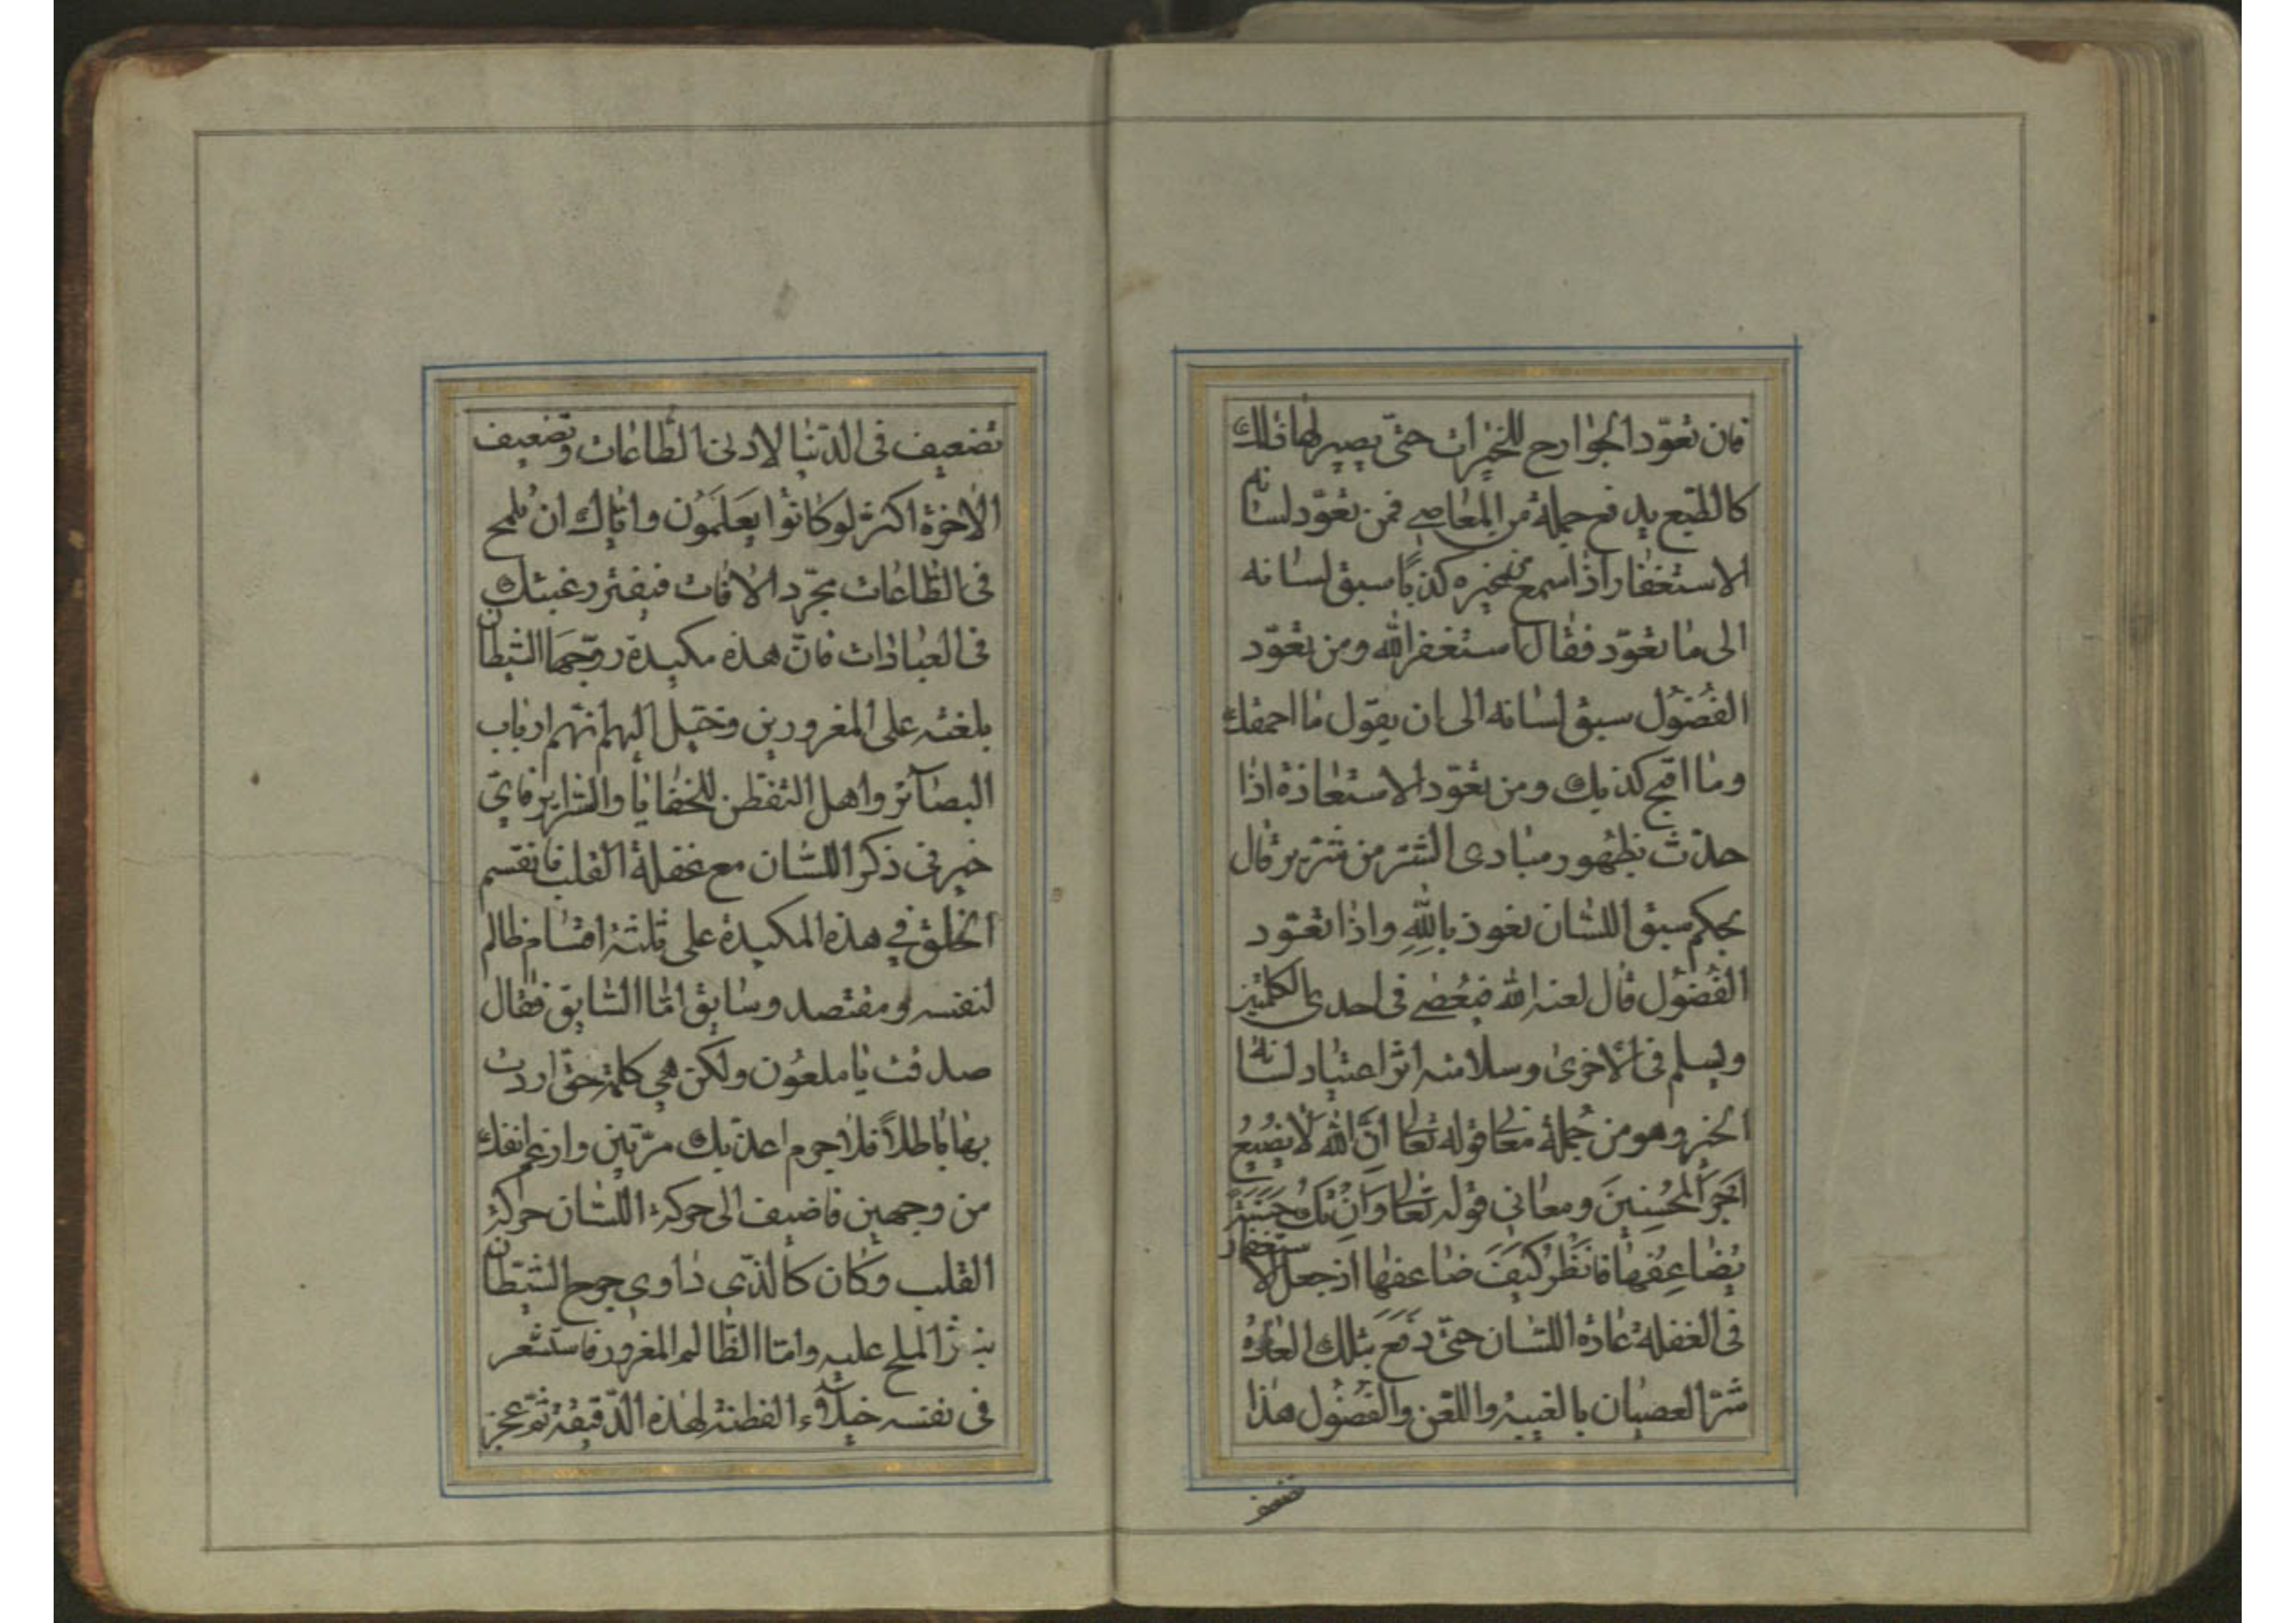 فان تعوّد الجوارح للخيرات حتّى يصير لها ذالك
كالطّبع يدفع جملة من المعاصي فمن تعوّد لسانه
الاستغفار اذا سمع من غيره كذبًا سبق لسانه
الى ما تعوّد فقال استغفر الله ومن تعوّد
الفُضُول سبق لسانه الى ان يقول ما احمقك
وما اقبح كذبك ومن تعوّد الاستعاذة اذا
حدّث بظهور مبادى الشّر من شرّير قال
بحكم سبق اللّسان نعوذ باللهِ واذا تعوّد
الفُضُول قال لعنه الله فيعُصي في احدى الكلمتين
ويسلم في الاخرى وسلامته اثر اعتياد لسانه
الخير وهو من جُملة معاني قوله تعالى انَّ الله لا يُضيعُ
اَجرَ المُحسِنينَ ومعاني قوله تعالى وَاِن تَكُ حَسَنَةً
يُضاعِفها فانظُر كَيفَ ضاعفها اذ جعل الاستغفار
في الغفلة عادة اللّسان حتّى دفع بتلك العادة
شرّ العصيان بالغيبة واللّعن والفضُول هذا
تضعيف
تضعيف في الدّنيا لادنى الطّاعات وتضعيف
الاخرة اكثر لو كانُوا يَعلَمُون وايّاك ان تلمح
في الطّاعات مجرّد الافات فيفتر رغبتك
في العبادات فانّ هذه مكيدة روّجها الشّيطان
بلعنته على المغرورين وخيّل اليهم انّهم ارباب
البصآئر واهل التفطّن للخفايا والسّراير فايّ
خير في ذكر اللّسان مع غفلة القلب فانقسم
الخلق في هذه المكيدة على ثلثة اقسام ظالم
لنفسه ومقتصد وسابق امّا السّابق فقال
صدقت يا ملعُون ولكن هي كلمة حقّ اردت
بها باطلاً فلا جرم اعذّبك مرّتين وارغم انفك
من وجهين فاضيف الى حركة اللّسان حركة
القلب وكان كالّذي داوي جرح الشّيطان
بنثر الملح عليه وامّا الظّالم المغرور فاستشعر
في نفسه خيلآء الفطنة لهذه الدّقيقة ثمّ عجز